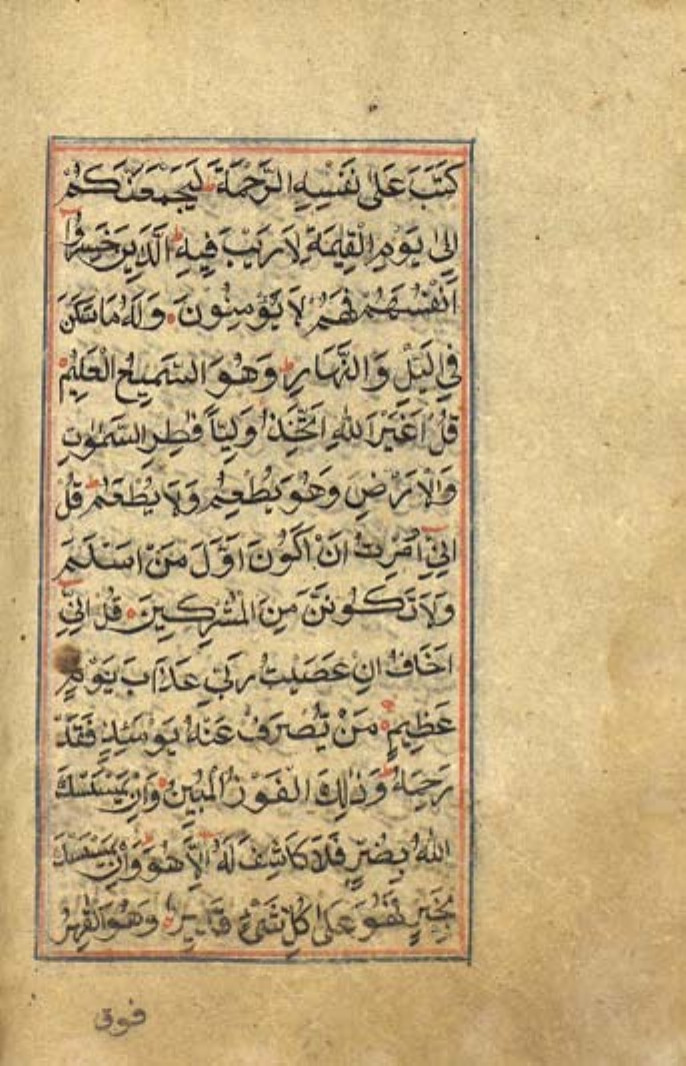 كَتَبَ عَلٰى نَفْسِهِ الرَّحْمَةَ ط لَيَجْمَعَنَّكُمْ
اِلٰى يَوْمِ الْقِيٰمَةِ لَا رَيْبَ فِيْهِ ط اَلَّذِيْنَ خَسِرُوْا
اَنْفُسَهُمْ فَهُمْ لَا يُؤْمِنُوْنَ وَلَهُ مَا سَكَنَ
فِي الَّيْلِ وَالنَّهَارِ ط وَهُوَ السَّمِيْعُ الْعَلِيْمُ
قُلْ اَغَيْرَ اللهِ اَتَّخِذُ وَلِيًّا فَاطِرِ السَّمٰوٰتِ
وَالْاَرْضِ وَهُوَ يُطْعِمُ وَلَا يُطْعَمُ ط قُلْ
اِنِّيْ اُمِرْتُ اَنْ اَكُوْنَ اَوَّلَ مَنْ اَسْلَمَ
وَلَا تَكُوْنَنَّ مِنَ الْمُشْرِكِيْنَ قُلْ اِنِّيْ
اَخَافُ اِنْ عَصَيْتُ رَبِّيْ عَذَابَ يَوْمٍ
عَظِيْمٍ مَنْ يُصْرَفْ عَنْهُ يَوْمَئِذٍ فَقَدْ
رَحِمَهُ ط وَذٰلِكَ الْفَوْزُ الْمُبِيْنُ وَاِنْ يَمْسَسْكَ
اللهُ بِضُرٍّ فَلَا كَاشِفَ لَهُ اِلَّا هُوَ ط وَاِنْ يَمْسَسْكَ
بِخَيْرٍ فَهُوَ عَلٰى كُلِّ شَيْءٍ قَدِيْرٌ وَهُوَ الْقَاهِرُ
فوق